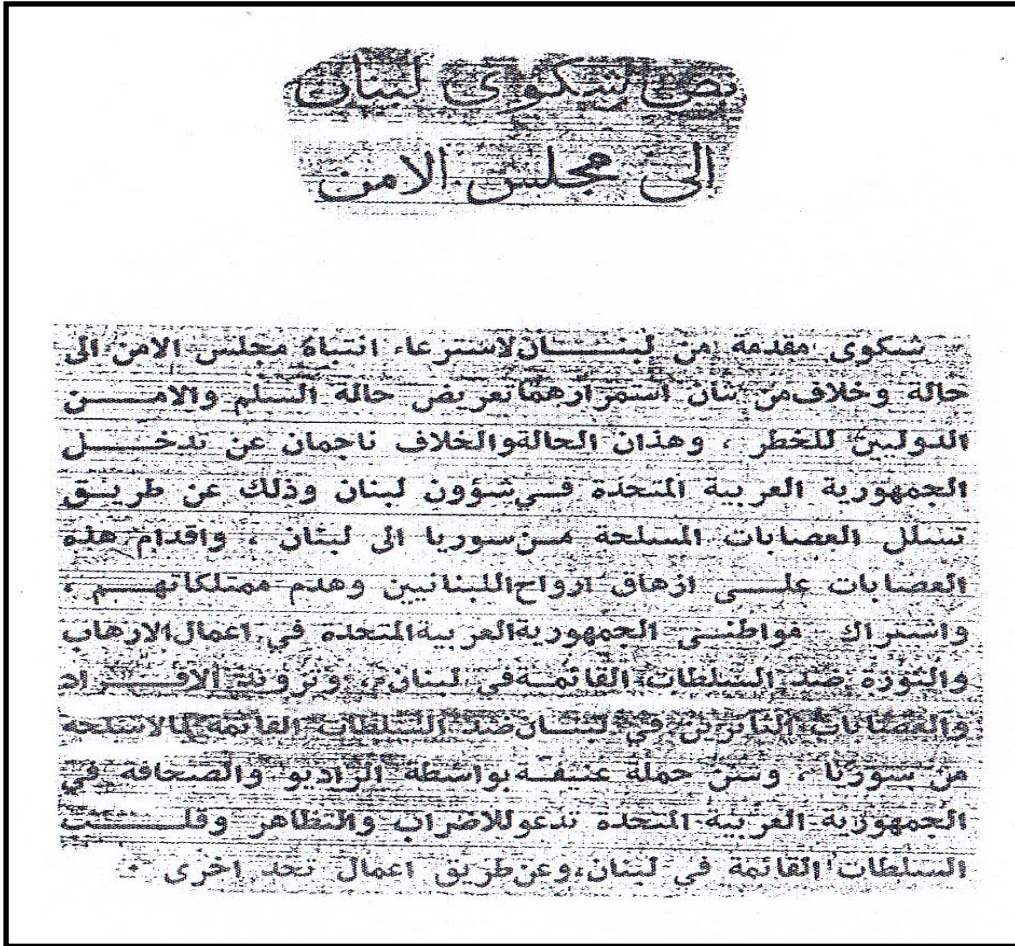 نص شكوى لبنان
إلى مجلس الامن
شكوى مقدمة من لبنــــان لاسترعاء انتباه مجلس الامن الى
حالة وخلاف من شأن استمرارهما تعريض حالة السلم والامــــن
الدوليين للخطر ، وهذان الحالة والخلاف ناجمان عن تدخــــل
الجمهورية العربية المتحدة فــي شؤون لبنان وذلك عن طريــق
تسلل العصابات المسلحة مــن سوريا الى لبنان ، واقدام هذه
العصابات علــــى ازهاق ارواح اللبنانيين وهدم ممتلكاتهــــم ،
واشتراك مواطنــي الجمهورية العربية المتحدة في اعمال الارهاب
والثورة ضد السلطات القائمــة في لبنان ، وتزويد الأفــــراد
والعصابات الثائرين في لبنــــان ضد السلطات القائمة بالاسلحة
من سوريا ، وشن حملة عنيفــة بواسطة الراديو والصحافة في
الجمهورية العربية المتحدة تدعو للاضراب والتظاهر وقلــــب
السلطات القائمة في لبنان، وعن طريق اعمال تحد اخرى .